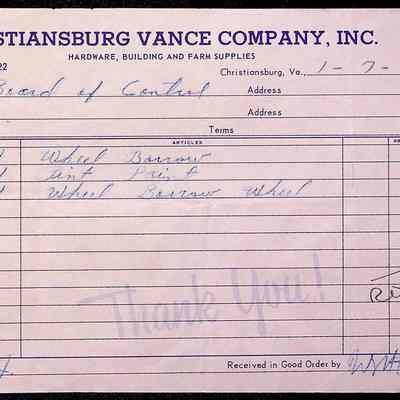 STIANSBURG VANCE COMPANY, INC.
HARDWARE, BUILDING AND FARM SUPPLIES
22
Christiansburg, Va., 1-7-
Board of Control Address
Address
Terms
ARTICLES
Wheel Barrow
Print
Wheel Barrow Wheel
Thank You!
Received in Good Order by